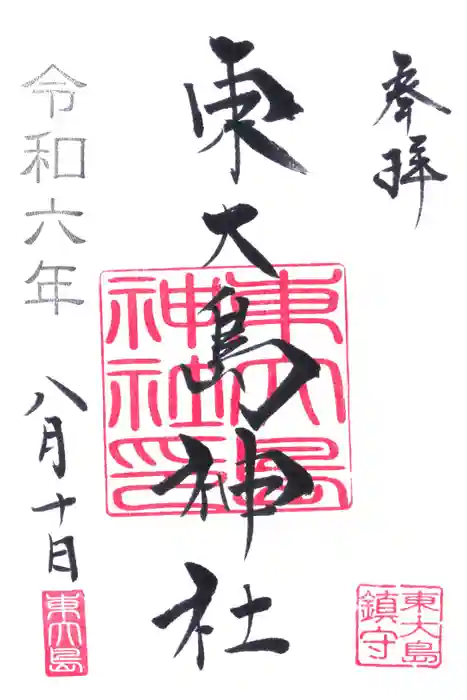 奉拝
東大島神社
東大島
神社印
令和六年
八月十日
東大島
鎮守
東大島